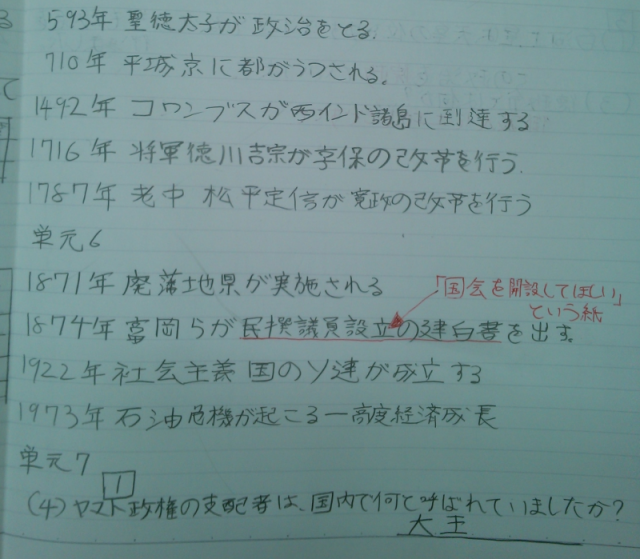 593年 聖徳太子が政治をとる.
710年 平城京に都がうつされる.
1492年 コロンブスが西インド諸島に到達する
1716年 将軍徳川吉宗が享保の改革を行う.
1787年 老中 松平定信が寛政の改革を行う
単元6
1871年 廃藩地県が実施される
「国会を開設してほしい」
という紙
1874年 富岡らが民撰議員設立の建白書を出す。
1922年 社会主義国のソ連が成立する
1973年 石油危機が起こるー高度経済成長
単元7
1
(4) ヤマト政権の支配者は、国内で何と呼ばれていましたか?
大王